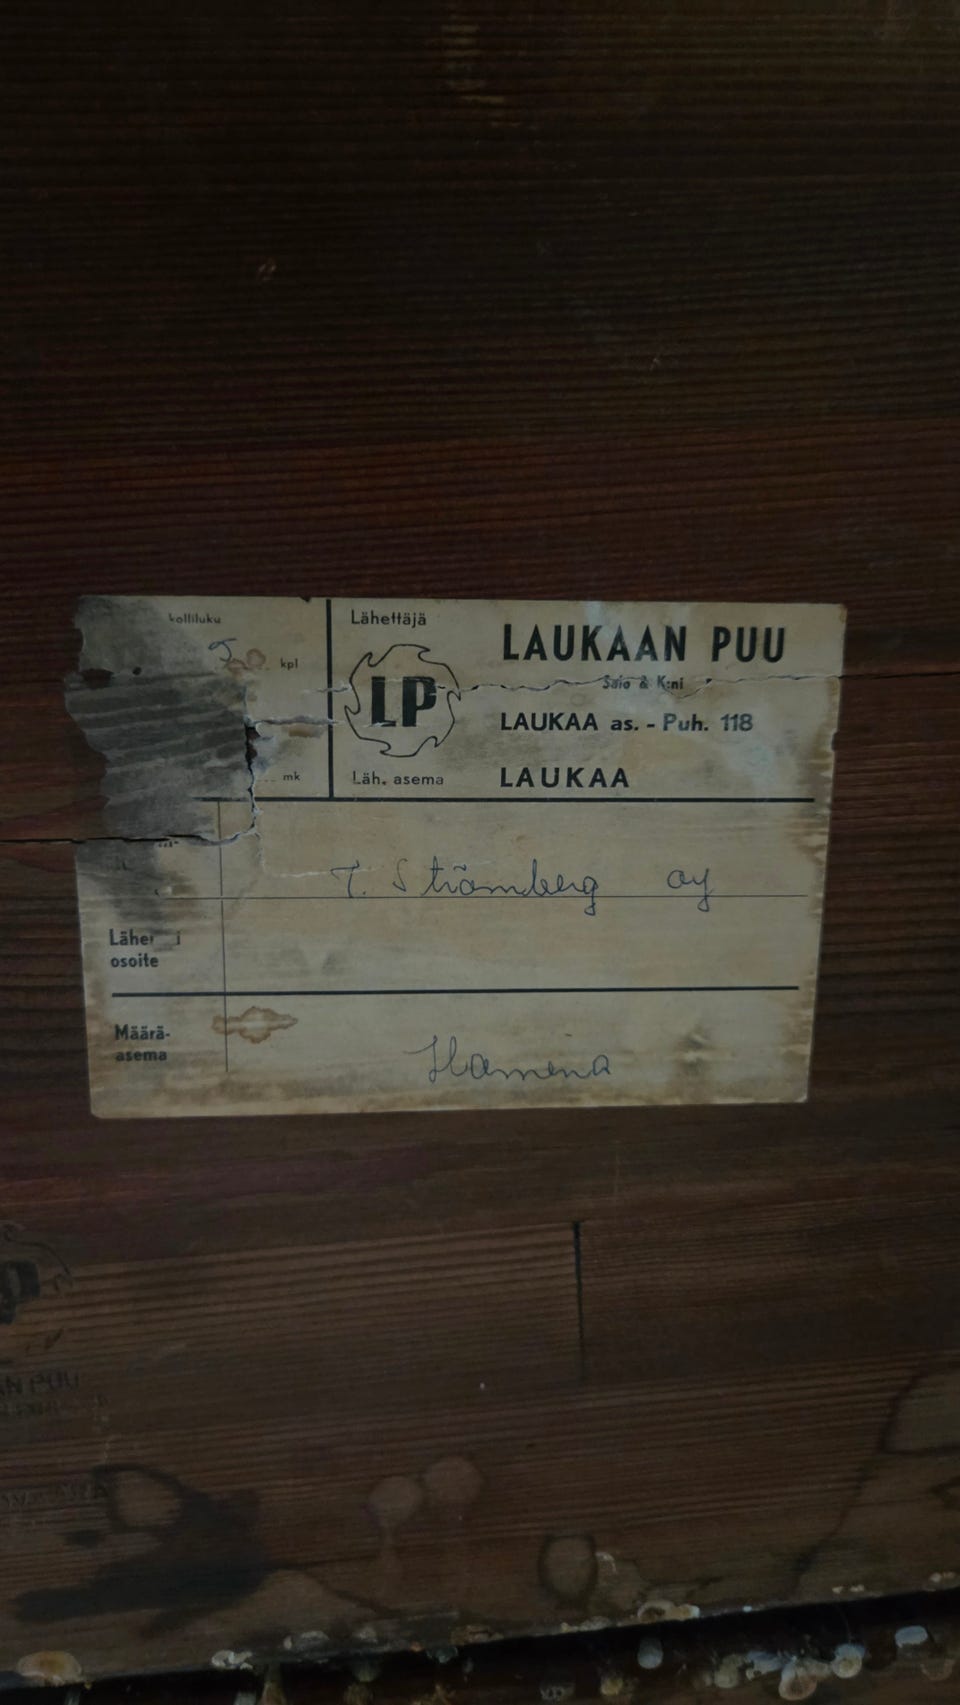 kolliluku
kpl
mk
Lähettäjä
LP
LAUKAAN PUU
Salo & K:ni
LAUKAA as. - Puh. 118
Läh. asema
LAUKAA
T. Strömberg oy
osoite
Määrä-
asema
Hamina
AN PUU